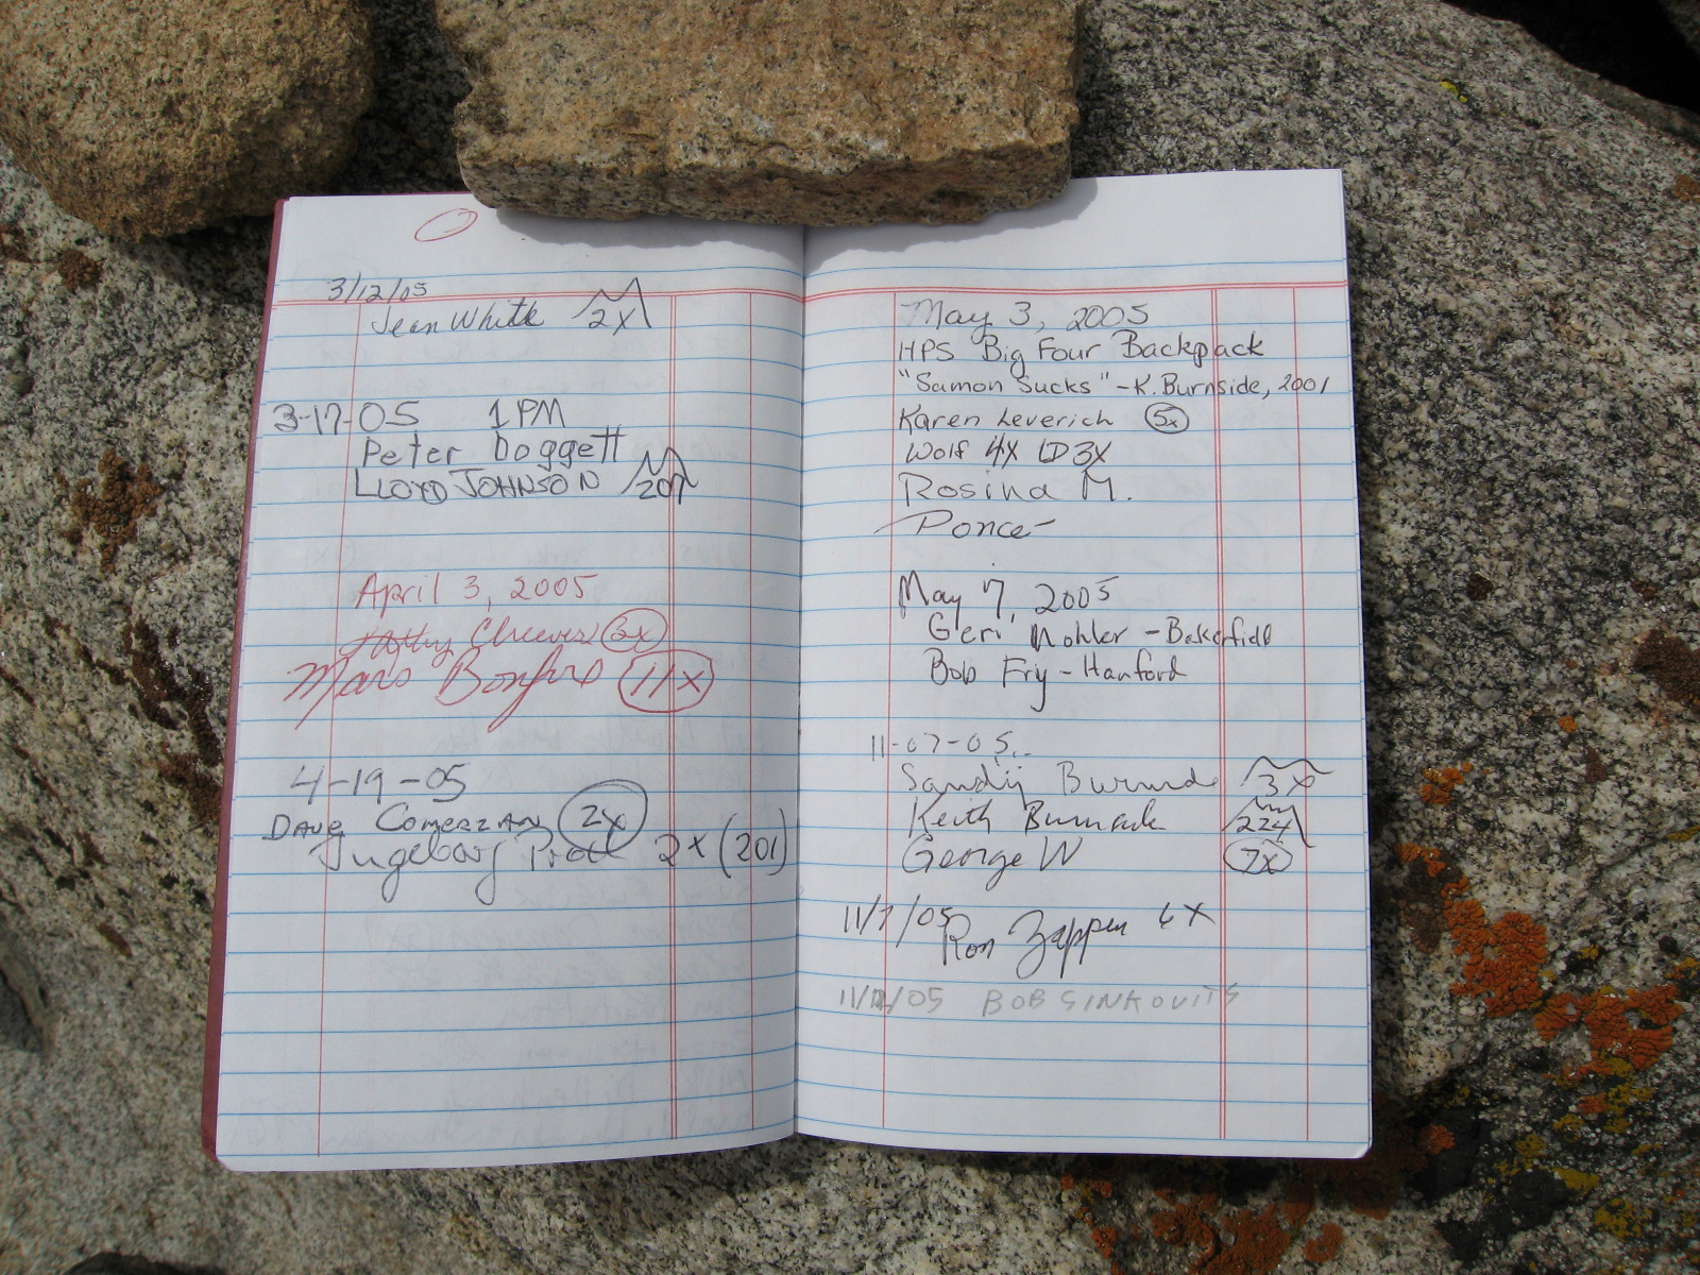 3/12/05
Jean White 2X
3-17-05 1PM
Peter Doggett
LLOYD JOHNSON 207
April 3, 2005
Kathy Cheever
Mars Bonfire 11x
4-19-05
DAVE COMERZAN 2x
Ingeborg Prochazka 2x (201)
May 3, 2005
HPS Big Four Backpack
"Samon Sucks" - K. Burnside, 2001
Karen Leverich 5x
Wolf 4X LD 3X
Rosina M.
Ponce
May 7, 2005
Geri Mohler - Bakersfield
Bob Fry - Hanford
11-07-05
Sandy Burnside 3x
Keith Burnside 224
George W 7x
11/7/05 Ron Zappen 6X
05 BOB SINKOVITS